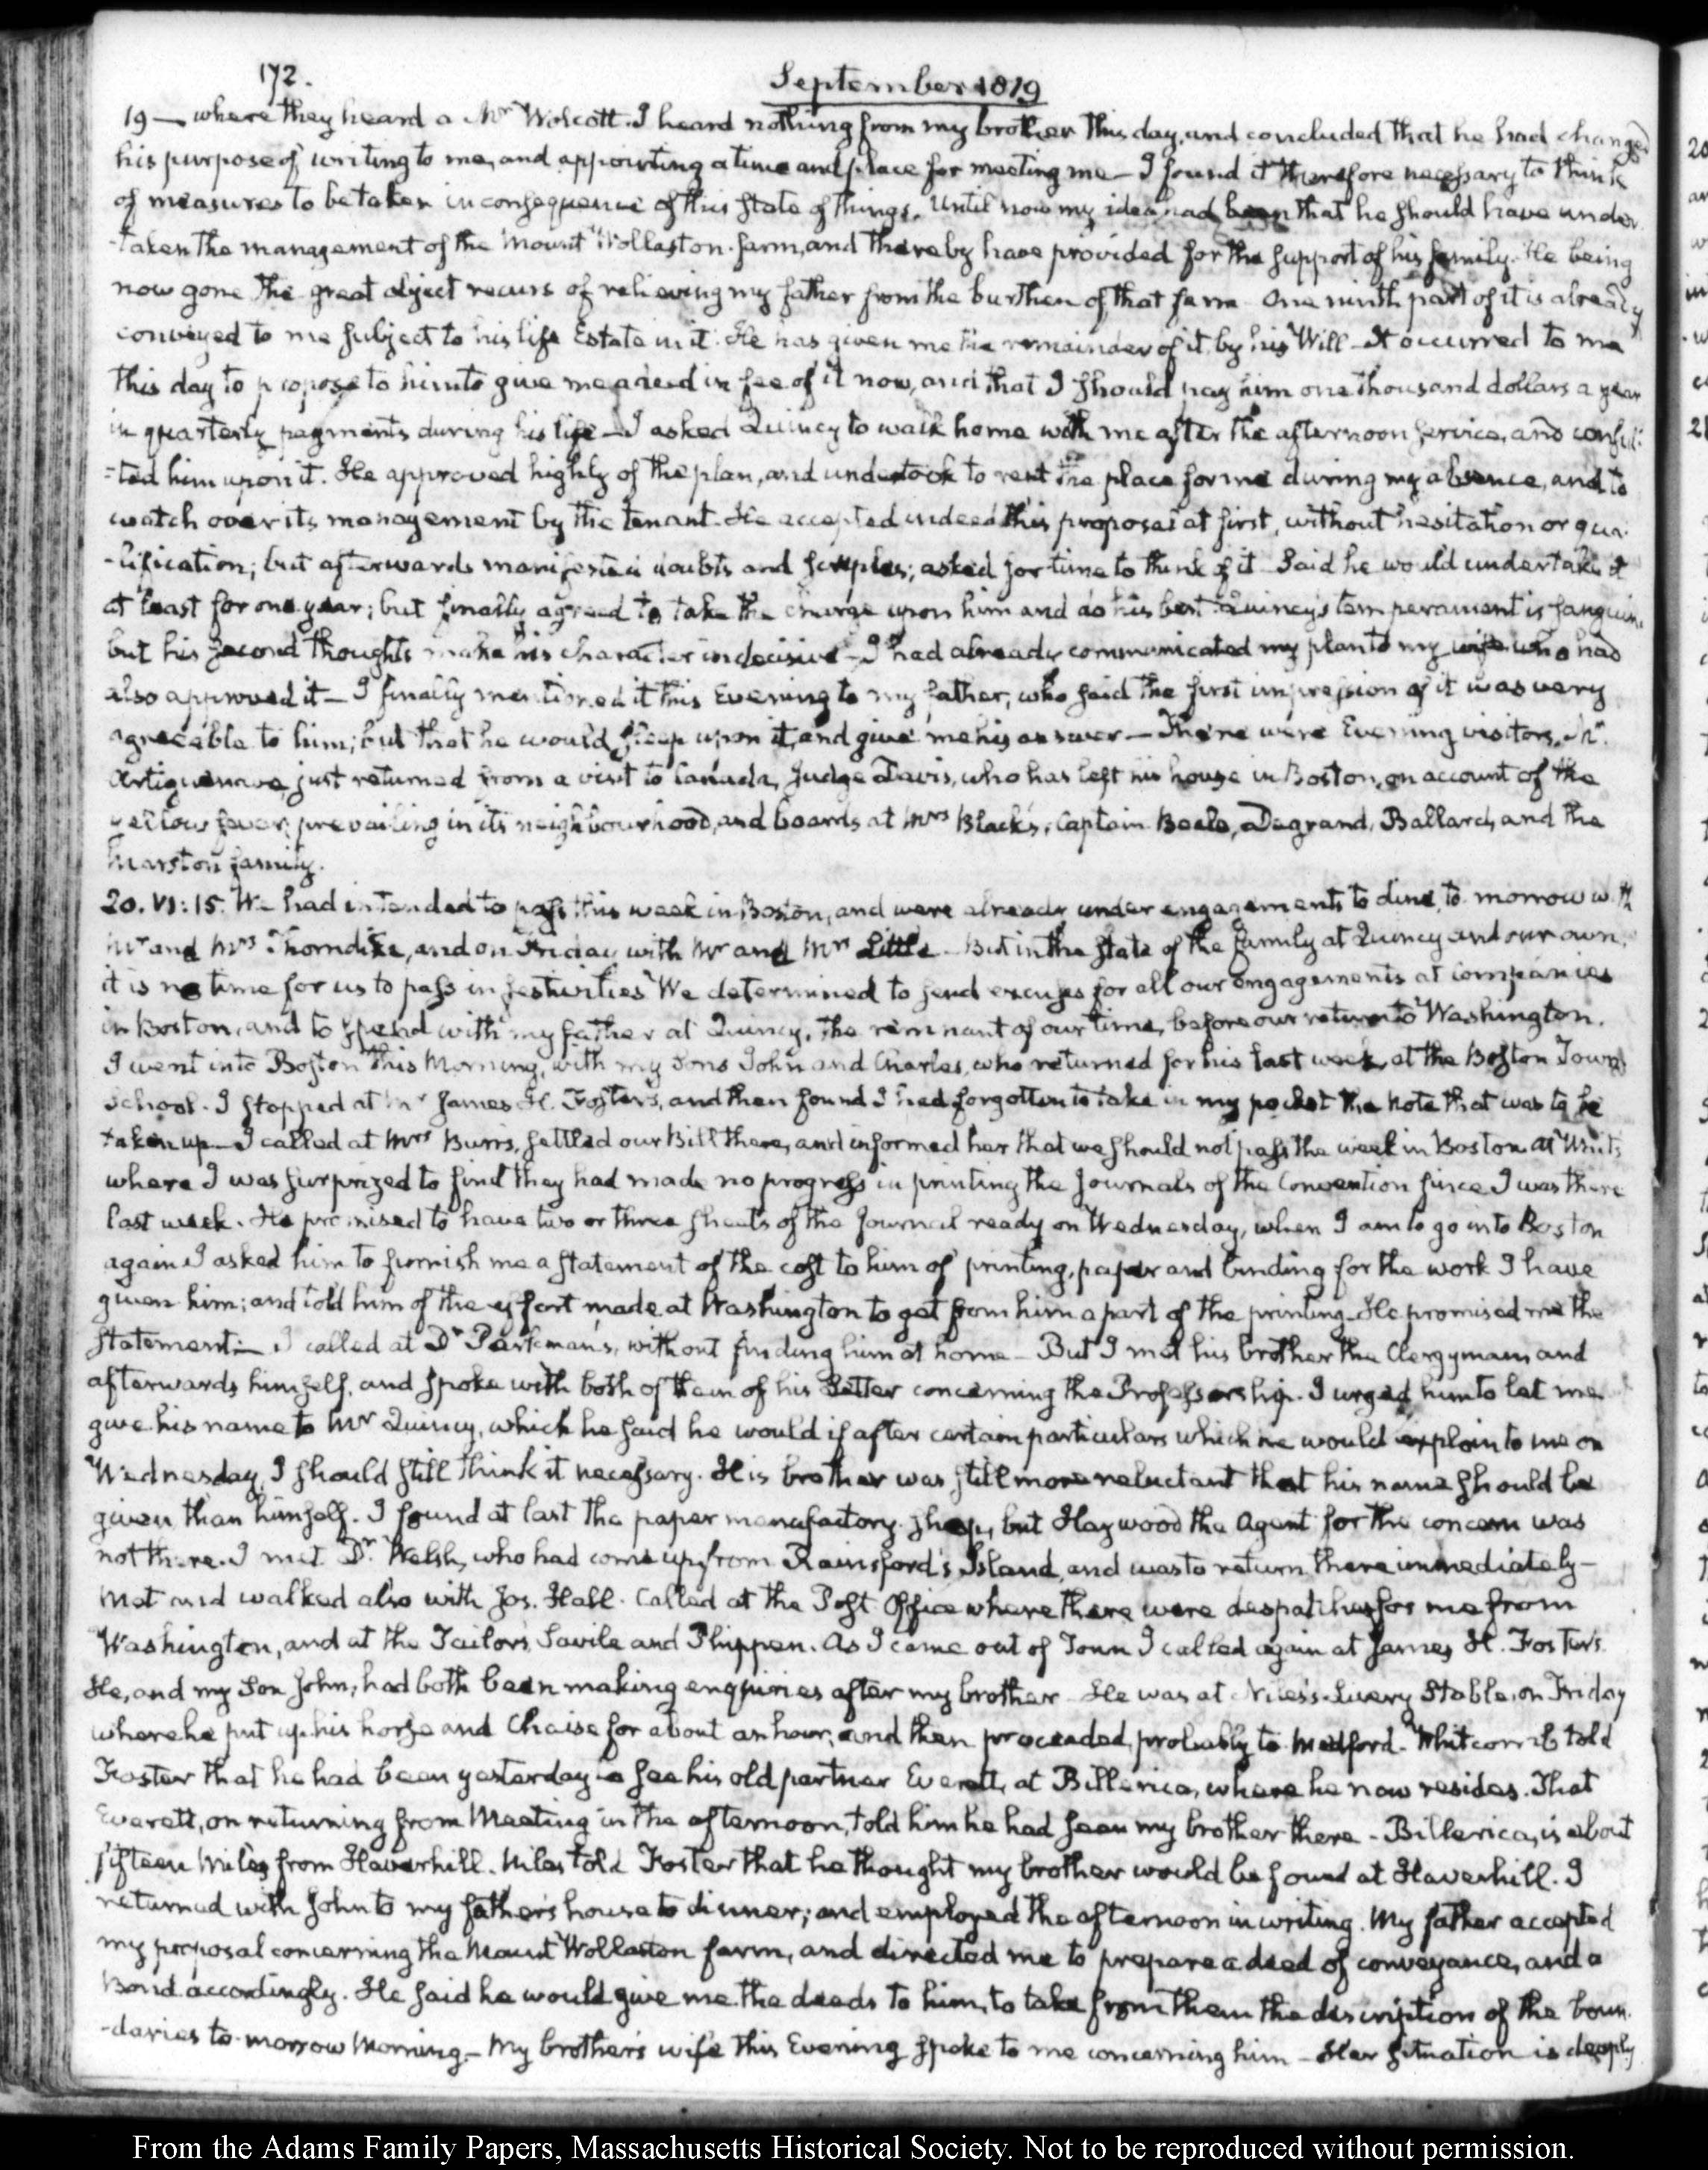 172.
September 1819
19 — where they heard a Mr Wolcott. I heard nothing from my brother this day, and concluded that he had changed
his purpose of writing to me, and appointing a time and place for meeting me — I found it therefore necessary to think
of measures to be taken in consequence of this state of things. Until now my idea had been that he should have under
-taken the management of the Mount Wollaston farm, and thereby have provided for the support of his family. He being
now gone the great object recurs of relieving my father from the burthen of that farm One ninth part of it is already
conveyed to me subject to his life Estate in it. He has given me the remainder of it by his Will — It occurred to me
this day to propose to him to give me a deed in fee of it now, and that I should pay him one thousand dollars a year
in quarterly payments during his life — I asked Quincy to walk home with me after the afternoon service, and consul-
-ted him upon it. He approved highly of the plan, and undertook to rent the place for me during my absence, and to
watch over its management by the tenant. He accepted indeed this proposal at first, without hesitation or qua-
-lification; but afterwards manifested doubts and scruples; asked for time to think of it Said he would undertake it
at least for one year; but finally agreed to take the charge upon him and do his best. Quincy's temperament is sanguine
but his second thoughts make his character indecisive — I had already communicated my plan to my wife who had
also approved it — I finally mentioned it this Evening to my father, who said the first impression of it was very
agreeable to him; but that he would sleep upon it, and give me his answer — There were Evening visitors, Mr
Artiguenave, just returned from a visit to Canada, Judge Davis, who has left his house in Boston, on account of the
yellow fever, prevailing in its neighbourhood, and boards at Mrs Black's, Captain Beale, Degrand, Ballard, and the
Marston family.
20. VI: 15. We had intended to pass this week in Boston, and were already under engagements to dine, to-morrow with
Mr and Mrs Thorndike, and on Friday with Mr and Mrs Little — But in the state of the family at Quincy and our own,
it is no time for us to pass in festivities We determined to send excuses for all our engagements at companies
in Boston, and to spend with my father at Quincy, the remnant of our time, before our return to Washington.
I went into Boston this Morning, with my Sons John and Charles, who returned for his last week, at the Boston Town
School. I stopped at Mr James H. Foster's, and then found I had forgotten to take in my pocket the note that was to be
taken up — I called at Mrs Burris, settled our Bill there, and informed her that we should not pass the week in Boston at
where I was surprized to find they had made no progress in printing the Journals of the Convention since I was there
last week. He promised to have two or three sheets of the Journal ready on Wednesday, when I am to go into Boston
again I asked him to furnish me a statement of the cost to him of printing, paper and binding for the work I have
given him; and told him of the effort made at Washington to get from him a part of the printing. He promised me the
statement — I called at Dr Parkman's, without finding him at home — But I met his brother the Clergyman and
afterwards himself, and spoke with both of them of his Letter concerning the Professorship. I urged him to let me
give his name to Mr Quincy, which he said he would if after certain particulars which he would explain to me on
Wednesday, I should still think it necessary. His brother was still more reluctant that his name should be
given than himself. I found at last the paper manufactory shop, but Haywood the Agent for the concern was
not there. I met Dr. Welsh, who had come up from Rainsford's Island, and was to return there immediately —
Met and walked also with Jos. Hall. Called at the Post Office where there were despatches for me from
Washington, and at the Tailors Savile and Phippen. As I came out of Town I called again at James H. Foster's.
He, and my Son John, had both been making enquiries after my brother — He was at Niles's Livery Stable, on Friday
where he put up his horse and Chaise for about an hour, and then proceeded, probably to Medford. Whitcomb told
Foster that he had been yesterday to see his old partner Everett, at Billerica, where he now resides. That
Everett, on returning from Meeting in the afternoon, told him he had seen my brother there — Billerica, is about
fifteen miles from Haverhill. Niles told Foster that he thought my brother would be found at Haverhill. I
returned with John to my father's house to dinner; and employed the afternoon in writing. My father accepted
my proposal concerning the Mount Wollaston farm, and directed me to prepare a deed of conveyance, and a
Bond accordingly. He said he would give me the deeds to him, to take from them the description of the boun-
-daries to-morrow Morning — My brother's wife this Evening spoke to me concerning him — Her situation is deeply
From the Adams Family Papers, Massachusetts Historical Society. Not to be reproduced without permission.